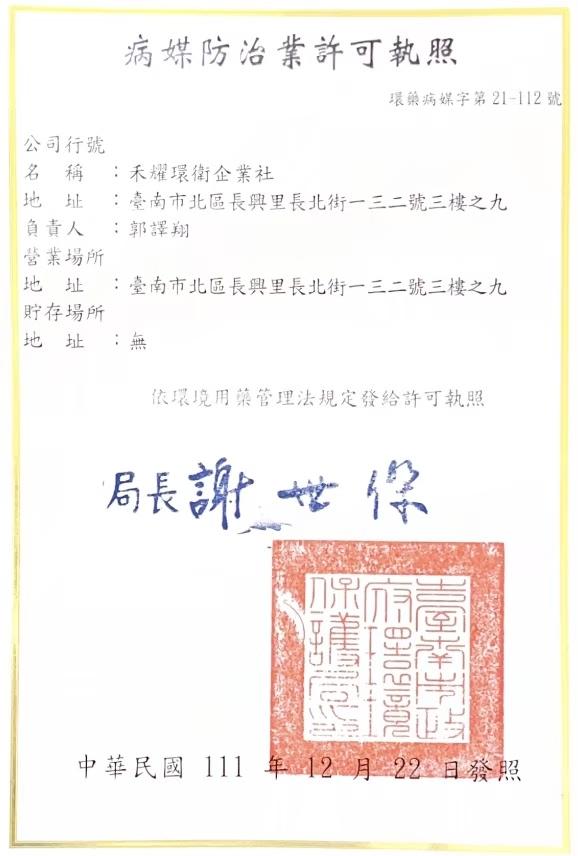 病媒防治業許可執照
環藥病媒字第21-112號
公司行號
名 稱 ：禾耀環衛企業社
地 址 ：臺南市北區長興里長北街一三二號三樓之九
負責人 ：郭譯翔
營業場所
地 址 ：臺南市北區長興里長北街一三二號三樓之九
貯存場所
地 址 ：無
依環境用藥管理法規定發給許可執照
局長 謝世傑
臺南市政
府環境
保護局印
中華民國 111 年 12 月 22 日發照